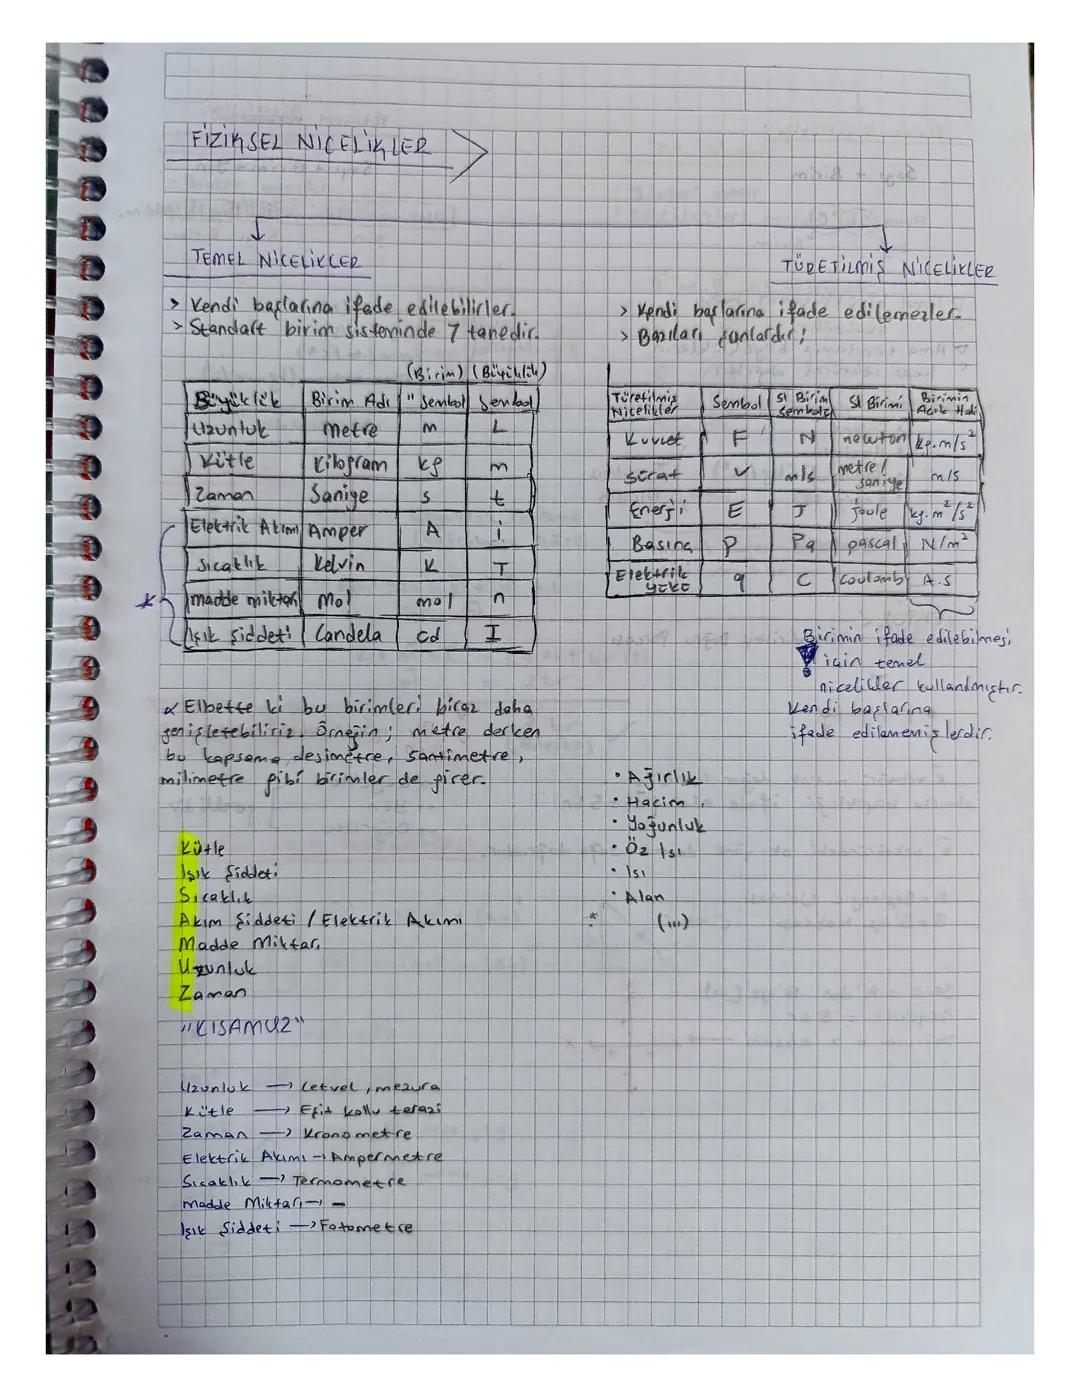 FİZİKSEL NİCELİKLER
TEMEL NİCELİKLER
> Kendi başlarına ifade edilebilirler.
> Standart birim sisteminde 7 tanedir.
(Birim) (Büyüklük)
Büyüklük Birim Adı " Sembol Sembol
Uzunluk metre m L
Kütle Kilogram kg m
Zaman Saniye s t
Elektrik Akımı Amper A i
Sıcaklık Kelvin K T
madde miktarı Mol mol n
Işık Şiddeti Candela cd I
Elbette ki bu birimleri biraz daha
genişletebiliriz. Örneğin; metre derken
bu kapsama desimetre, santimetre,
milimetre gibi birimler de girer.
Kütle
Işık Şiddeti
Sıcaklık
Akım Şiddeti / Elektrik Akımı
Madde Miktarı
Uzunluk
Zaman
"KISAMUZ"
Uzunluk → Cetvel, mezura
Kütle → Eşit kollu terazi
Zaman → Kronometre
Elektrik Akımı → Ampermetre
Sıcaklık → Termometre
Madde Miktarı → -
Işık Şiddeti → Fotometre
TÜRETİLMİŞ NİCELİKLER
> Kendi başlarına ifade edilemezler.
> Bazıları şunlardır;
Türetilmiş Nicelikler Sembol SI Birim Sembolü SI Birimi Birimin Açık Hali
Kuvvet F N newton kg.m/s²
Sürat v m/s metre/saniye m/s
Enerji E J joule kg.m²/s²
Basınç P Pa pascal N/m²
Elektrik YÜKÜ q C Coulomb A.s
Birimin ifade edilebilmesi
için temel
nicelikler kullanılmıştır.
Kendi başlarına
ifade edilememişlerdir.
• Ağırlık
• Hacim
• Yoğunluk
• Öz Isı
• Isı
• Alan
(...)